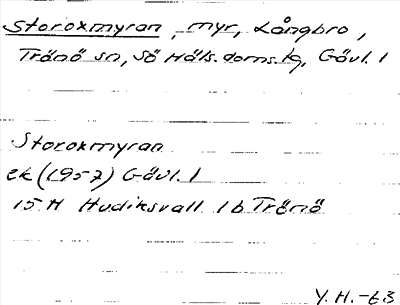 Storoxmyran, myr, Långbro,
Tränö sn, Sö Häls. doms. lg, Gävl. l
Storoxmyran
ek (1957) Gävl. l
15 H Hudiksvall 1b Tränö
Y. H. -63